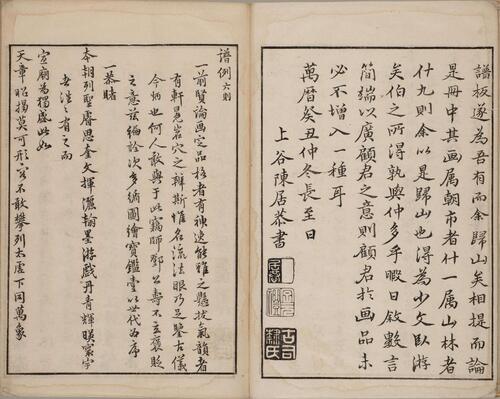 譜板遂為吾有而余歸山矣提而論
是冊中其画属朝市者什一属山林者
什九則余以是歸山也得為少文臥游
矣伯之所得孰與仲多乎暇日敘數言
簡端以廣顧君之意則顧君於画品未
必不增入一種耳
萬曆癸丑仲冬長至日
上谷陳居恭書
譜例六則
一前賢論画定品格者有神逸能雅之懸狀氣韻者
有軒冕岩穴之辨斯惟名流法眼乃足鑒古儀
今炳也何人敢與于此竊師鄧公壽不立褒貶
之意茲編於次多循圖繪寶鑑㙯以世代為序
一恭睹
本朝列聖睿思奎文揮灑翰墨游戲丹青輝暎寰宇
有之而
宣廟為獨盛此如
天章昭揭莫可形容不敢攀列太虛下同萬象